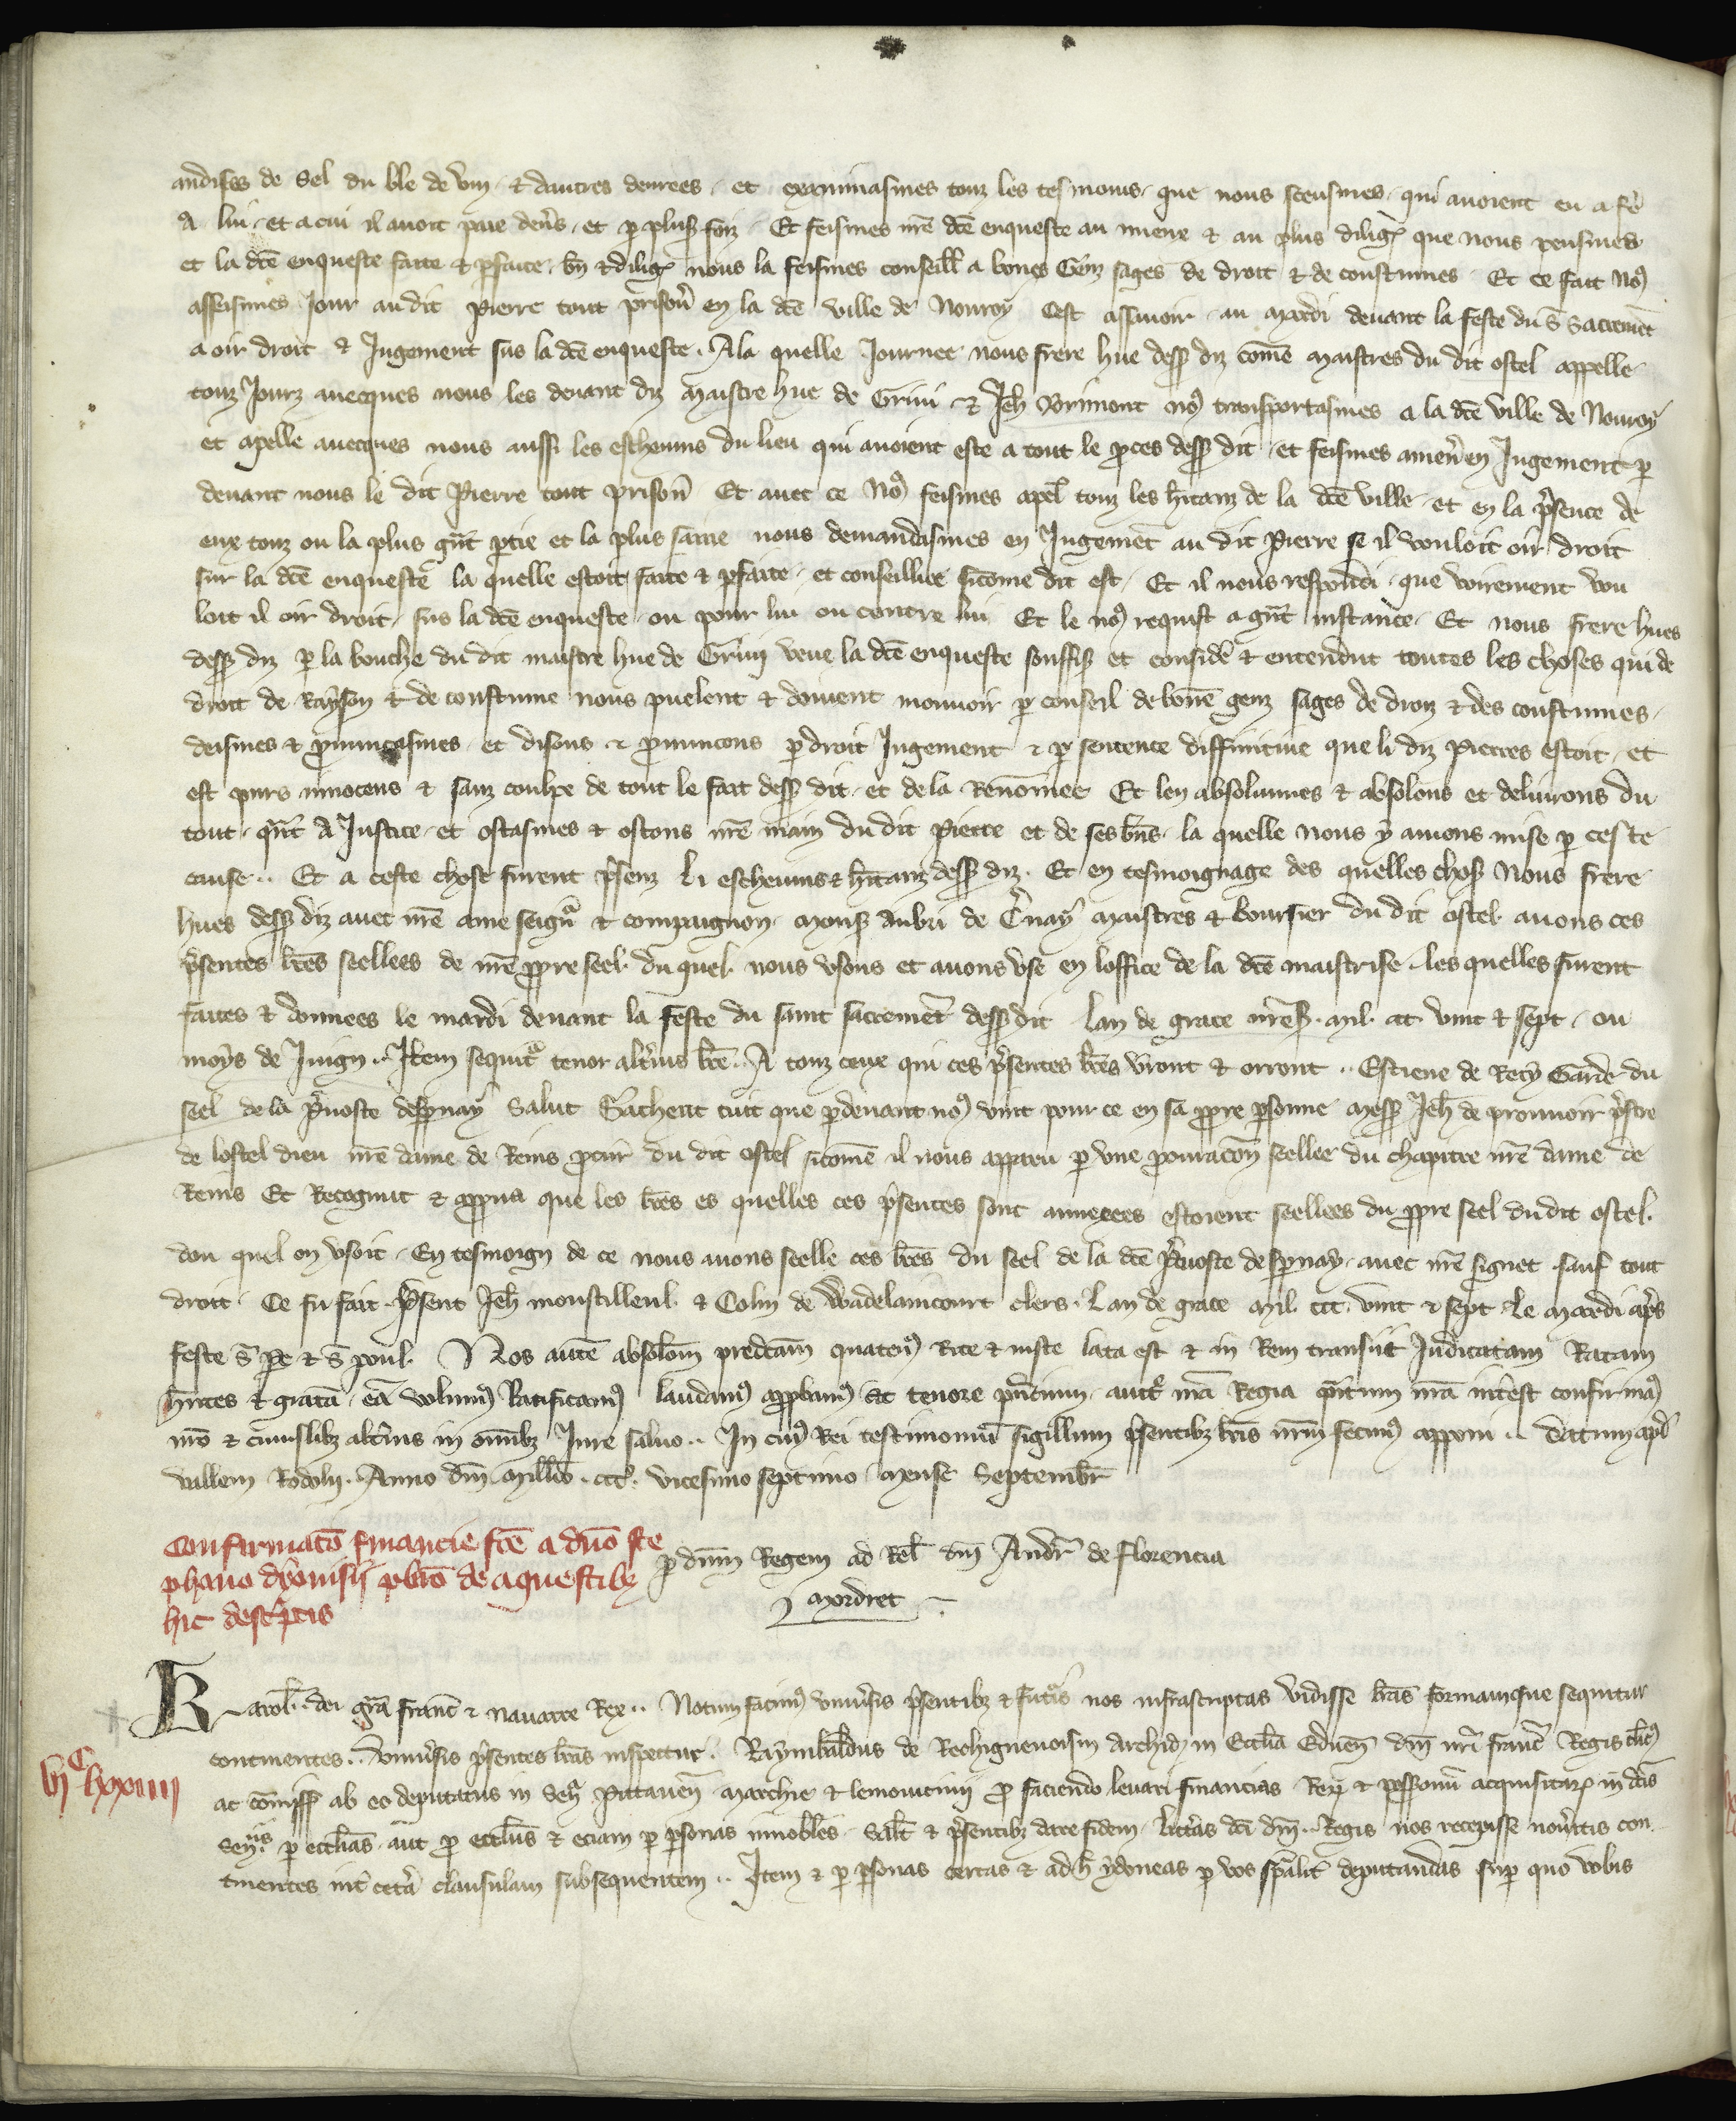 andises de sel du ble de vin et dautres denrees et examinasmes touz les tesmoins que nous sceusmes qui avoient eu a fe
A lui et a cui il avoit paie den̄s et ꝑ plus foiz Et feismes nr̄e dc̄e enqueste au miene et au plus dilig que nous peusmes
et la dc̄e enqueste faite et ꝑfaite bn̄ et dilig nous la feismes conseill a bones Genz sages de droit et de coustumes Et ce fait noꝰ
asseismes Jour au dit Pierre tout prison̄ en la dc̄e ville de Nouroy Cest assavoir au mardi devant la feste du S Sacremēt
a oir droit et Jugement sus la dc̄e enqueste. A la quelle Journee nous frere hue dess diz cōme maistres du dit ostel appelle
touz Jourz avecques nous les devant diz maistre hue de Gruni et Jeh Vorimont noꝰ transportasmes a la dc̄e ville de Nouroy
et apelle avecques nous aussi les eschevins du lieu qui avoient este a tout le ꝓces dess dit et feismes amen̄ en Jugement ꝑ
devant nous le dit Pierre tout prison̄ Et avec ce Noꝰ feismes apel touz les hītanz de la dc̄e ville et en la p̄sence de
eux touz ou la plus gn̄t ꝑtie et la plus saine nous demandasmes en Jugemēt au dit Pierre se il vouloit oir droit
sur la dc̄e enqueste la quelle estoit faite et ꝑfaite et conseilliee sicome dit est Et il nous respondi que voirement vou
loit il oir droit sus la dc̄e enqueste ou pour lui ou contre lui Et le noꝰ requist a gn̄t instance Et nous frere hues
dess diz ꝑ la bouche du dit maistre hue de Gruni veue la dc̄e enqueste souffis et consid̄e et entendut toutes les choses qui de
droit de Rayson et de coustume nous puelent et doivent mouvoir ꝑ conseil de bone genz sages de droiz et des coustumes
deismes et ꝓnuncasmes et disons et ꝓnuncons ꝑ droit Jugement et ꝑ sentence diffinitive que li diz Pierres estoit et
est purs innocens et sanz coulpe de tout le fait dess dit et de la Renōmee Et len absolumes et absolons et delivrons du
tout qn̄t A Justice et ostasmes et ostons nr̄e main du dit Pierre et de ses bn̄s la quelle nous y avions mise ꝑ ceste
cause .. Et a ceste chose furent p̄senz li eschevins et hītanz dess diz. Et en tesmoignage des quelles chos Nous frere
hues dess diz avec nr̄e ame seign̄r et compaignon mons Aubri de C̄nay maistres et boursier du dit ostel avons ces
p̄sentes lr̄es seellees de nr̄e ꝓpre seel du quel nous usons et avons use en loffice de la dc̄e maistrise les quelles furent
faites et donnees le mardi devant la feste du saint sacremēt dess dit Lan de grace mil. ccc. vint et sept ou
moys de Juign .. Item sequit̄ tenor alt̄ius lr̄e. A touz ceux qui ces p̄sentes lr̄es v̄ront et orront .. Estiene de Recy Garde du
seel de la P̄voste despnay Salut Sachent tuit que ꝑdevant noꝰ vint pour ce en sa ꝓpre ꝑsonne mess Jeh de prouvoir p̄stre
de lostel dieu nr̄e dame de Reins ꝓcur̄ du dit ostel sicōme il nous apparu ꝑ une ꝓcuracōn seellee du chapitre nr̄e dame de
Reins Et Recognut et aꝓuva que les lr̄es es quelles ces p̄sentes sont annexees estoient seellees du ꝓpre seel du dit ostel.
dou quel on usoit. En tesmoign de ce nous avons seelle ces lr̄es du seel de la dc̄e P̄voste despnay avec nr̄e signet sauf tout
droit. Ce fu fait p̄sent Jeh monstilleul et Colin de Wadelaincourt clers. Lan de grace mil ccc. vint et sept le mardi ap̄s
feste S Pe et S poul. Nos autē absolōm predcām quatenꝰ Rite et iuste lata est et in Rem transiit Judicatam Ratam
hn̄tes et gratā eā volumꝰ Ratificamꝰ laudamꝰ aꝓbamꝰ et tenore pn̄cium auct̄ nr̄a Regia qn̄tum nr̄a int̄est confirmaꝰ
nr̄o et cuiuslibz alt̄ius in omībz Jure salvo .. In cuiꝰ Rei testimoniū sigillum p̄sentibz lr̄is nr̄m fecimꝰ apponi .. Datum apd̄
vallem Rodolii. Anno dn̄i Millīo. cccᵒ. vicesimo septimo mense Septembr̄
Confirmatō financie fc̄e a dn̄o ste
phano dyonisii pb̄ro de aquestibz
hic descriptis
ꝑ dn̄m Regem ad Rel dn̄i Andr̄ de Florencia
Mordret
Karol. dei grā franc̄ et Navarre Rex .. Notum facimꝰ univ̄sis p̄sentibz et fut̄is nos infrascriptas vidisse lr̄as formam que sequitur
continentes .. Univ̄sis p̄sentes lr̄as inspectur̄. Raymbaldus de Rechignevoisin Archid in Ecclia Eduen̄ dn̄i nr̄i franc̄ Regis cl̄icꝰ
ac cōmiss ab eo deputatus in Sen̄ Pictaven̄ Marchie et lemovicinii ꝓ faciendo levari financias Reꝝ et possessionū acquisitaꝝ in dc̄is
Sen̄iis ꝑ ecclias aut ꝓ eccliis et eciam ꝑ ꝑsonas innobiles. Salt̄ et p̄sentibz dare fidem. Litt̄as dc̄i dn̄i .. Regis nos recepisse nov̄itis con
tinentes int̄ cet̄a clausulam subsequentem .. Item et ꝑ ꝑsonas certas et ad h̄ ydoneas ꝑ vos sp̄alit̄ deputandas suꝑ quo vobis
viᶜ lxxiiii